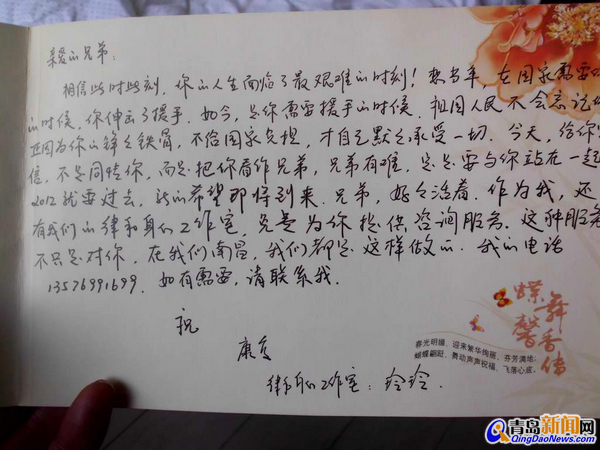 亲爱的兄弟:
相信此时此刻,你的人生面临了最艰难的时刻!想当年,在国家需要
的时候,你伸出了援手。如今,是你需要援手的时候,祖国人民不会忘记
正因为你的铮铮铁骨,不给国家负担,才自己默默承受一切。今天,给你
信,不是同情你,而是把你看作兄弟,兄弟有难,是要与你站在一起
2012就要过去,新的希望即将到来。兄弟,好好活着,作为我,还
有我们的律和身心工作室,免费为你提供咨询服务。这种服务
不只是对你,在我们南昌,我们都是这样做的。我的电话
13576991699. 如有需要,请联系我.
祝
康复
工作室:玲玲.
蝶舞
馨香传
春光明媚,迎来繁华绚丽,芬芳满地;
蝴蝶翩跹,舞动声声祝福,飞落心底。
青岛新闻网
QingDaoNews.Com